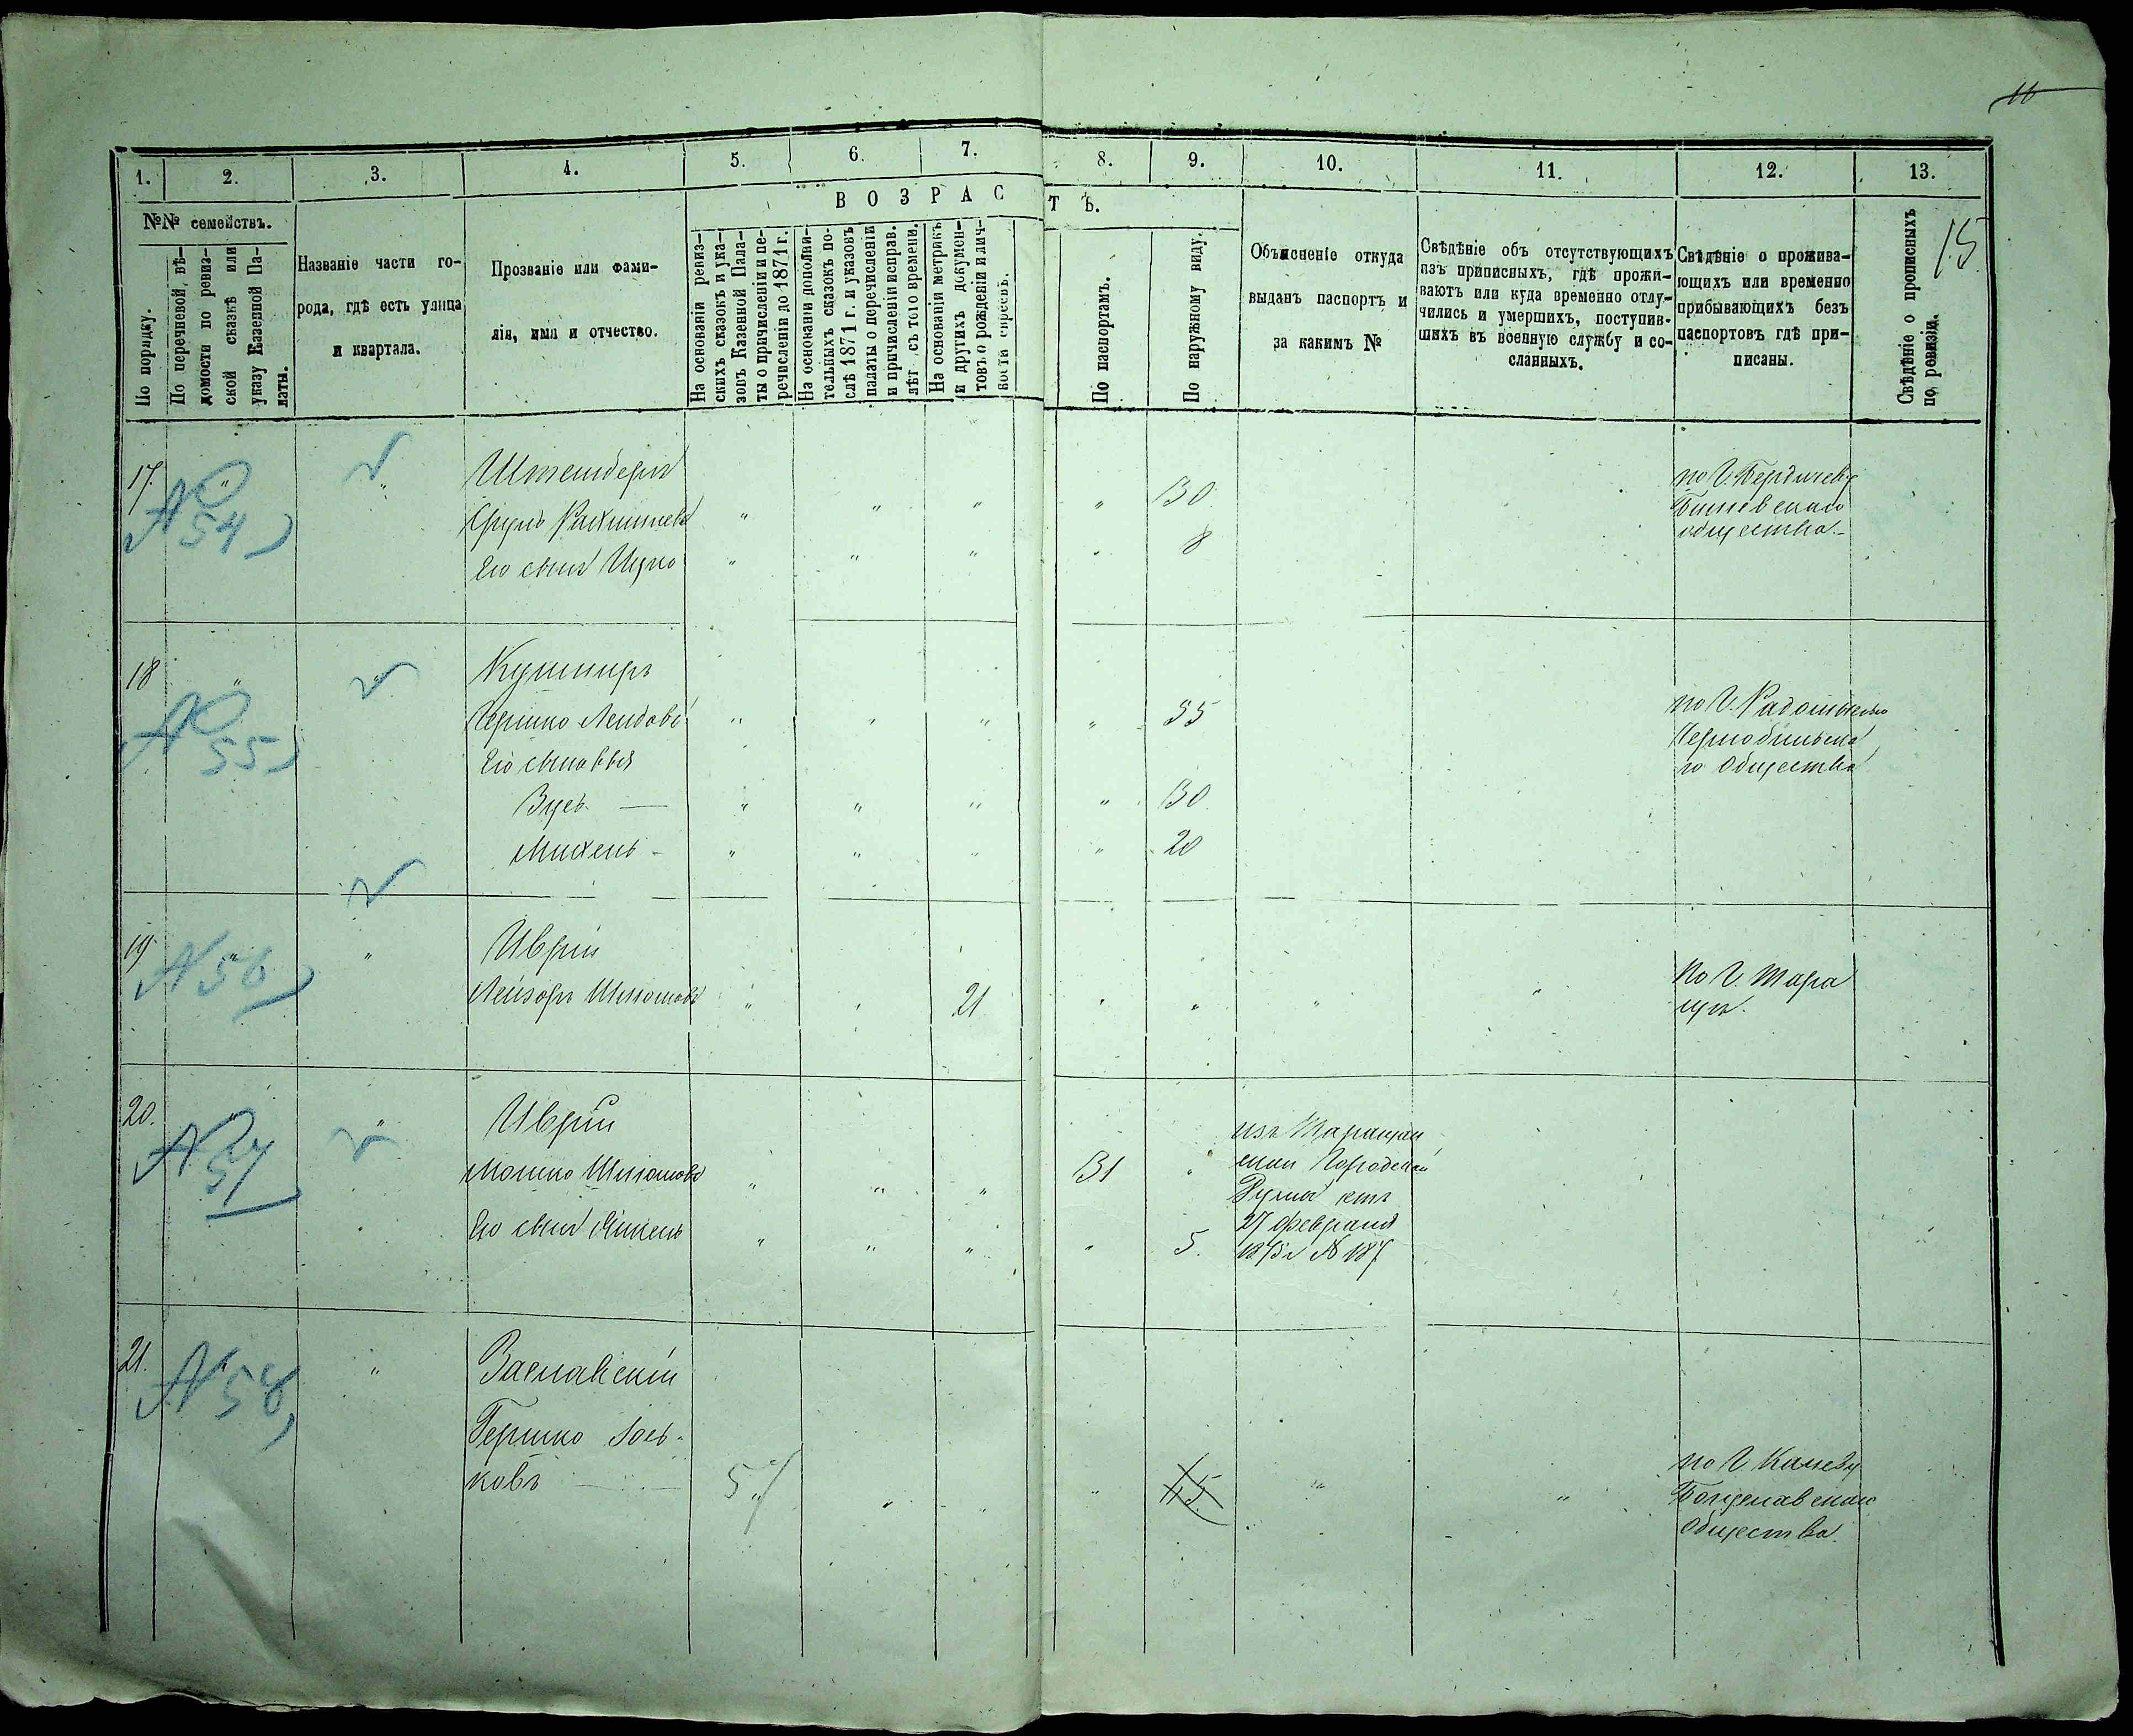 11
1. 2. 3. 4. 5. 6. 7. 8. 9. 10. 11. 12. 13.
№№ семействъ.
По порядку.
По перечневой вѣ-
домости по ревиз-
ской сказкѣ или
указу Казенной Па-
латы.
Названіе части го-
рода, гдѣ есть улица
и квартала.
Прозваніе или фами-
лія, имя и отчество.
ВОЗРАСТЪ.
На основаніи ревиз-
скихъ сказокъ и ука-
зовъ Казенной Пала-
ты о причисленіи и пе-
речисленіи до 1871 г.
На основаніи дополни-
тельныхъ сказокъ по-
слѣ 1871 г. и указовъ
палаты о перечисленіи
и причисленіи исправ.
лѣт съ того времени.
На основаніи метрикъ
и другихъ докумен-
товъ о рожденіи и лич-
По паспортамъ.
По наружному виду.
Объясненіе откуда
выданъ паспортъ и
за какимъ №
Свѣдѣніе объ отсутствующихъ
изъ приписныхъ, гдѣ прожи-
ваютъ или куда временно отлу-
чились и умершихъ, поступив-
шихъ въ военную службу и со-
сланныхъ.
Свѣдѣніе о прожива-
ющихъ или временно
прибывающихъ безъ
паспортовъ гдѣ при-
писаны.
Свѣдѣніе о прописныхъ
по ревизіи.
15.
17. " " Штейнберг
Сруль " " " " 30
Его сын Ицко " " " " 8
по Г. Бердичеву
общества.
№ 54
18 " " Кушниръ
Гершко Лейбовъ " " " " 55
Его сыновья
Зусь — " " " " 30
Михель - " " " " 20
по Г. Радомысльско
Чернобыльска
го Общества
№ 55
19 " " Иврій
Лейзоръ " " 21 " " " "
По Г. Тара
щѣ.
№ 56
20. " " Иврій
Мошко " " " 31 "
Его сын " " " " 5.
изъ Таращан
ской Городской
Думы отъ
27 февраля
1875 г № 187
№ 57
21. " " Заславскій
Гершко Іось-
ковъ — 57 " " " 45 " "
по Г. Каневу
Богуславскаго
Общества.
№ 58